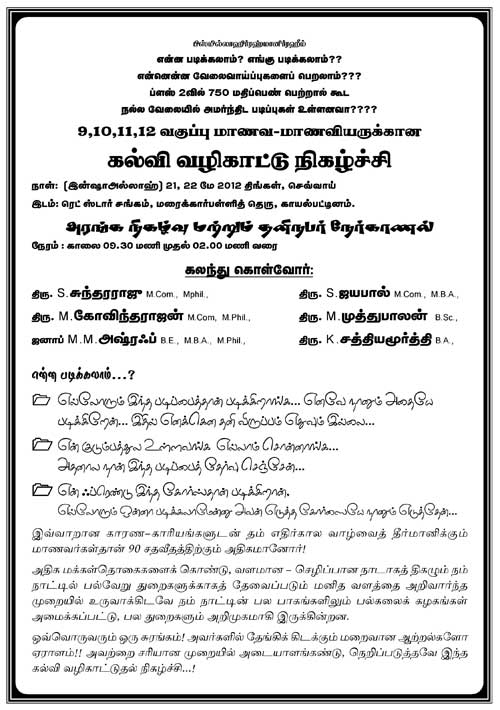 பிஸ்மில்லாஹிர்ரஹ்மானிர்ரஹீம்
என்ன படிக்கலாம்? எங்கு படிக்கலாம்??
என்னென்ன வேலைவாய்ப்புகளைப் பெறலாம்???
ப்ளஸ் 2வில் 750 மதிப்பெண் பெற்றால் கூட
நல்ல வேலையில் அமர்ந்திட படிப்புகள் உள்ளனவா????
9,10,11,12 வகுப்பு மாணவ-மாணவியருக்கான
கல்வி வழிகாட்டு நிகழ்ச்சி
நாள்: (இன்ஷாஅல்லாஹ்) 21, 22 மே 2012 திங்கள், செவ்வாய்
இடம்: ரெட் ஸ்டார் சங்கம், மரைக்கார்பள்ளித் தெரு, காயல்பட்டினம்.
அரங்க நிகழ்வு மற்றும் தனிநபர் நேர்காணல்
நேரம் : காலை 09.30 மணி முதல் 02.00 மணி வரை
கலந்து கொள்வோர்:
திரு. S.சுந்தரராஜு M.Com., Mphil., திரு. S.ஜயபால் M.Com., M.B.A.,
திரு. M.கோவிந்தராஜன் M.Com, M.Phil., திரு. M.முத்துபாலன் B.Sc.,
ஜனாப் M.M.அஷ்ரஃப் B.E., M.B.A., M.Phil., திரு. K.சத்தியமூர்த்தி B.A.,
என்ன படிக்கலாம்...?
எல்லோரும் இந்த படிப்பைத்தான் படிக்கிறாங்க... எனவே நானும் அதையே
படிக்கிறேன்... இதில் எனக்கென தனி விருப்பம் எதுவும் இல்லை...
என் குடும்பத்துல உள்ளவங்க எல்லாம் சொன்னாங்க...
அதனால நான் இந்த படிப்பைத் தேர்வு செஞ்சேன்...
என் ஃப்ரெண்டு இந்த கோர்ஸ்தான் படிக்கிறான்.
எல்லோரும் ஒன்னா படிக்கலாமேண்ணு அவன் எடுத்த கோர்ஸையே நானும் எடுத்தேன்...
இவ்வாறான காரண-காரியங்களுடன் தம் எதிர்கால வாழ்வைத் தீர்மானிக்கும்
மாணவர்கள்தான் 90 சதவீதத்திற்கும் அதிகமானோர்!
அதிக மக்கள்தொகைகளைக் கொண்டு, வளமான - செழிப்பான நாடாகத் திகழும் நம்
நாட்டில் பல்வேறு துறைகளுக்காகத் தேவைப்படும் மனித வளத்தை அறிவார்ந்த
முறையில் உருவாக்கிடவே நம் நாட்டின் பல பாகங்களிலும் பல்கலைக் கழகங்கள்
அமைக்கப்பட்டு, பல துறைகளும் அறிமுகமாகி இருக்கின்றன.
ஒவ்வொருவரும் ஒரு சுரங்கம்! அவர்களில் தேங்கிக் கிடக்கும் மறைவான ஆற்றல்களோ
ஏராளம்!! அவற்றை சரியான முறையில் அடையாளங்கண்டு, நெறிப்படுத்தவே இந்த
கல்வி வழிகாட்டுதல் நிகழ்ச்சி...!